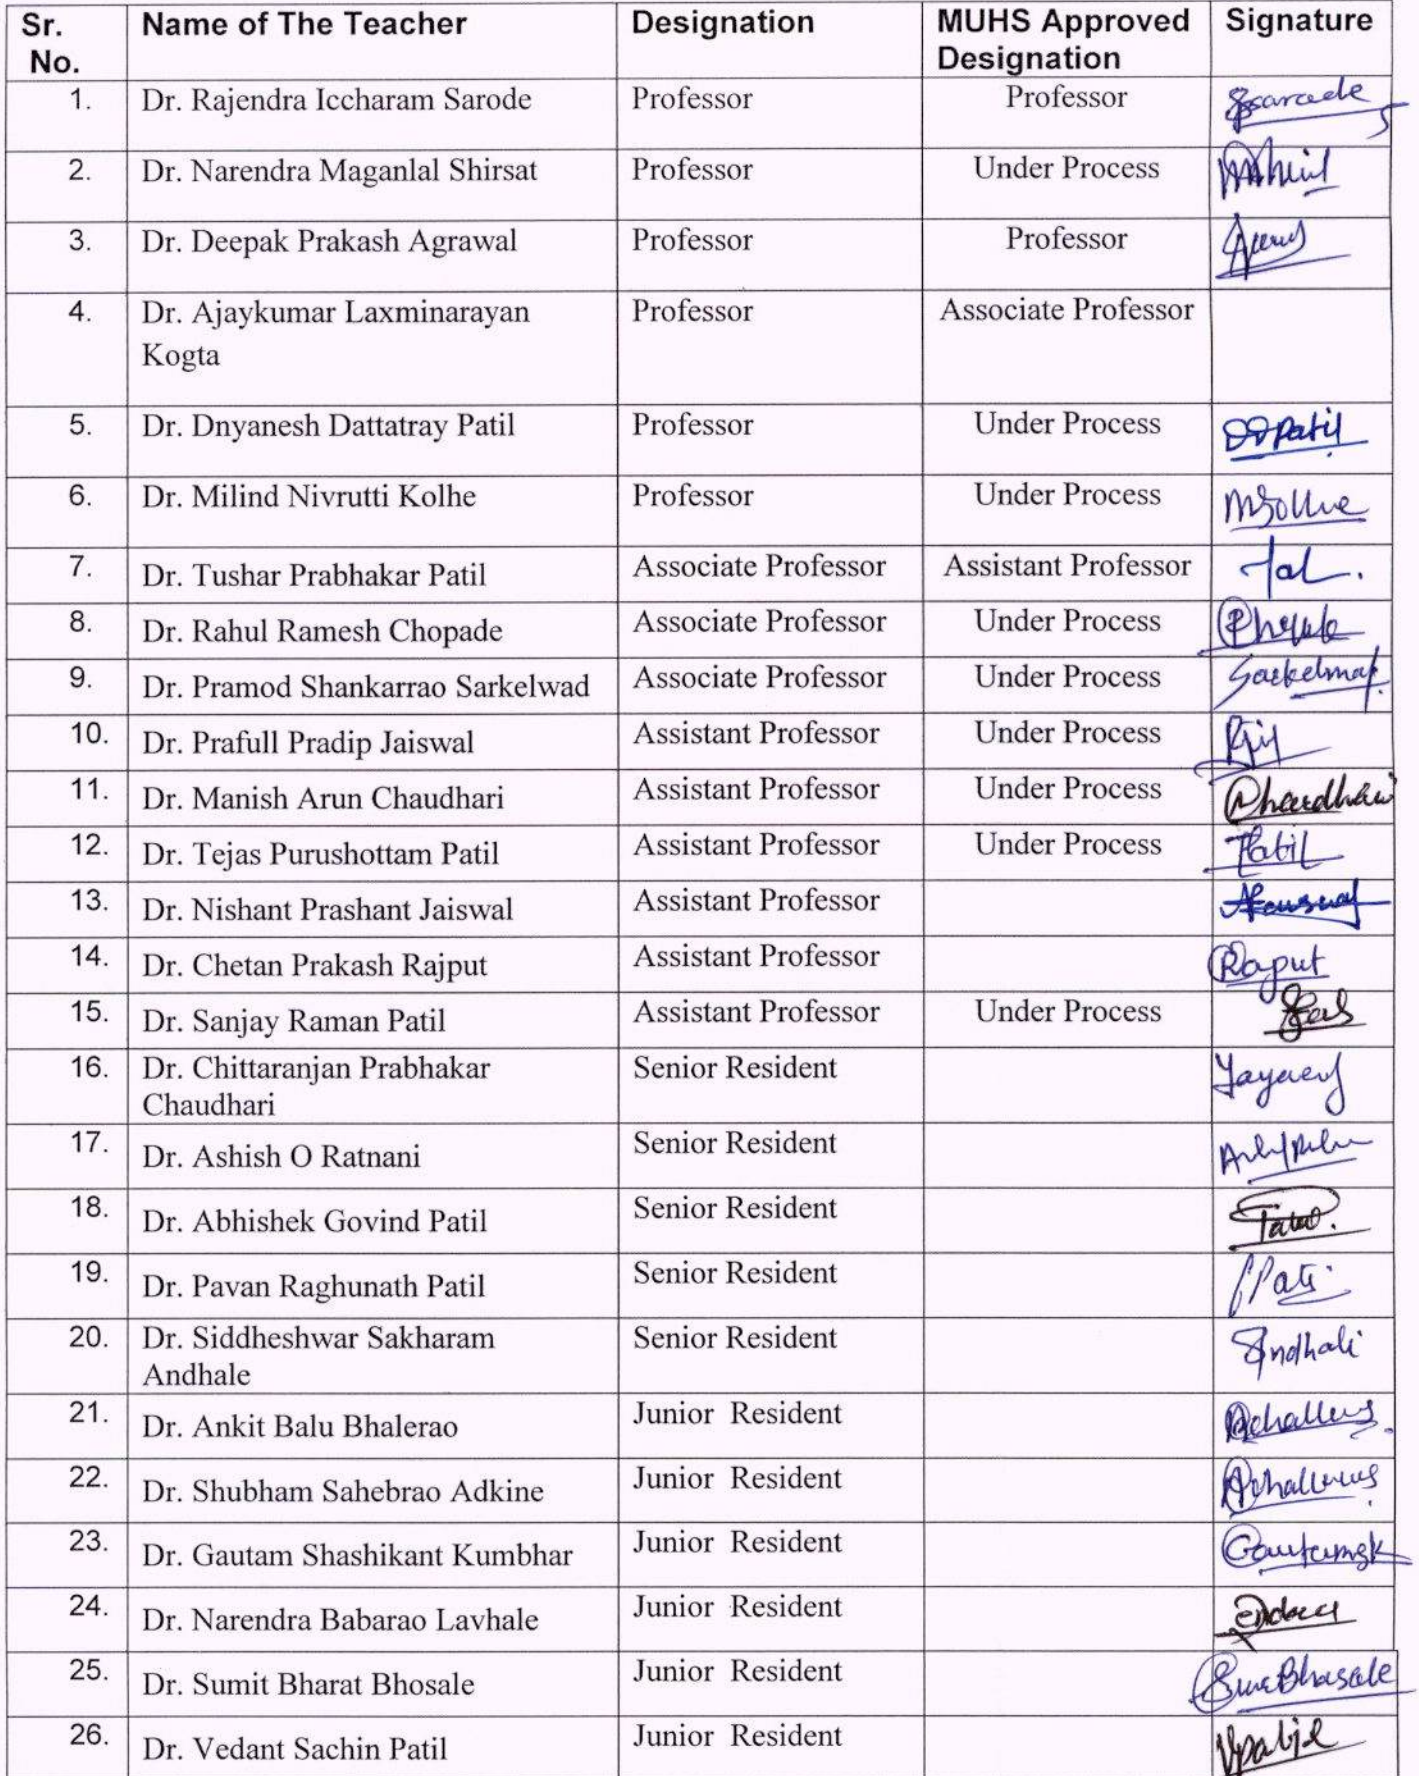 Sr. No. Name of The Teacher Designation MUHS Approved Designation Signature
1. Dr. Rajendra Iccharam Sarode Professor Professor
2. Dr. Narendra Maganlal Shirsat Professor Under Process
3. Dr. Deepak Prakash Agrawal Professor Professor
4. Dr. Ajaykumar Laxminarayan Kogta Professor Associate Professor
5. Dr. Dnyanesh Dattatray Patil Professor Under Process DDPatil
6. Dr. Milind Nivrutti Kolhe Professor Under Process
7. Dr. Tushar Prabhakar Patil Associate Professor Assistant Professor
8. Dr. Rahul Ramesh Chopade Associate Professor Under Process
9. Dr. Pramod Shankarrao Sarkelwad Associate Professor Under Process
10. Dr. Prafull Pradip Jaiswal Assistant Professor Under Process
11. Dr. Manish Arun Chaudhari Assistant Professor Under Process
12. Dr. Tejas Purushottam Patil Assistant Professor Under Process
13. Dr. Nishant Prashant Jaiswal Assistant Professor
14. Dr. Chetan Prakash Rajput Assistant Professor
15. Dr. Sanjay Raman Patil Assistant Professor Under Process
16. Dr. Chittaranjan Prabhakar Chaudhari Senior Resident
17. Dr. Ashish O Ratnani Senior Resident
18. Dr. Abhishek Govind Patil Senior Resident
19. Dr. Pavan Raghunath Patil Senior Resident
20. Dr. Siddheshwar Sakharam Andhale Senior Resident
21. Dr. Ankit Balu Bhalerao Junior Resident
22. Dr. Shubham Sahebrao Adkine Junior Resident
23. Dr. Gautam Shashikant Kumbhar Junior Resident
24. Dr. Narendra Babarao Lavhale Junior Resident
25. Dr. Sumit Bharat Bhosale Junior Resident
26. Dr. Vedant Sachin Patil Junior Resident